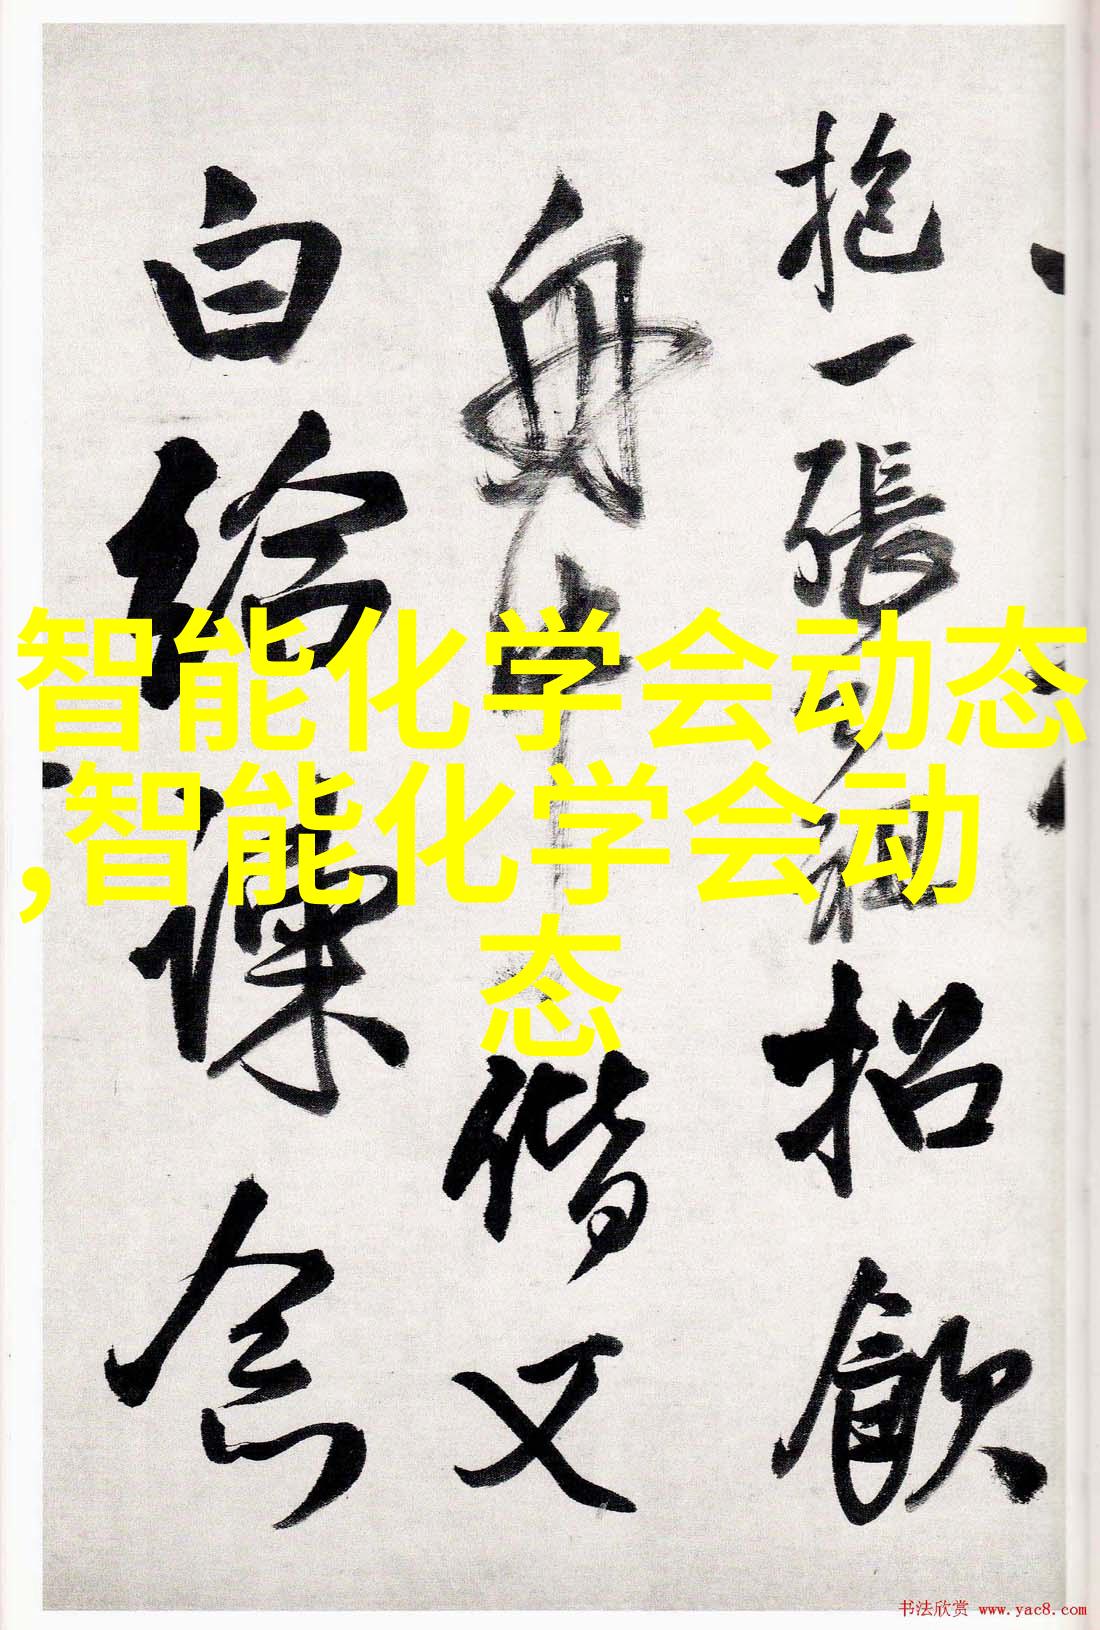 抱一張
招飲
舟中
偕又
白給諫
念
智能化学会动态
,智能化学会动
态
书法欣赏 www.yac8.com